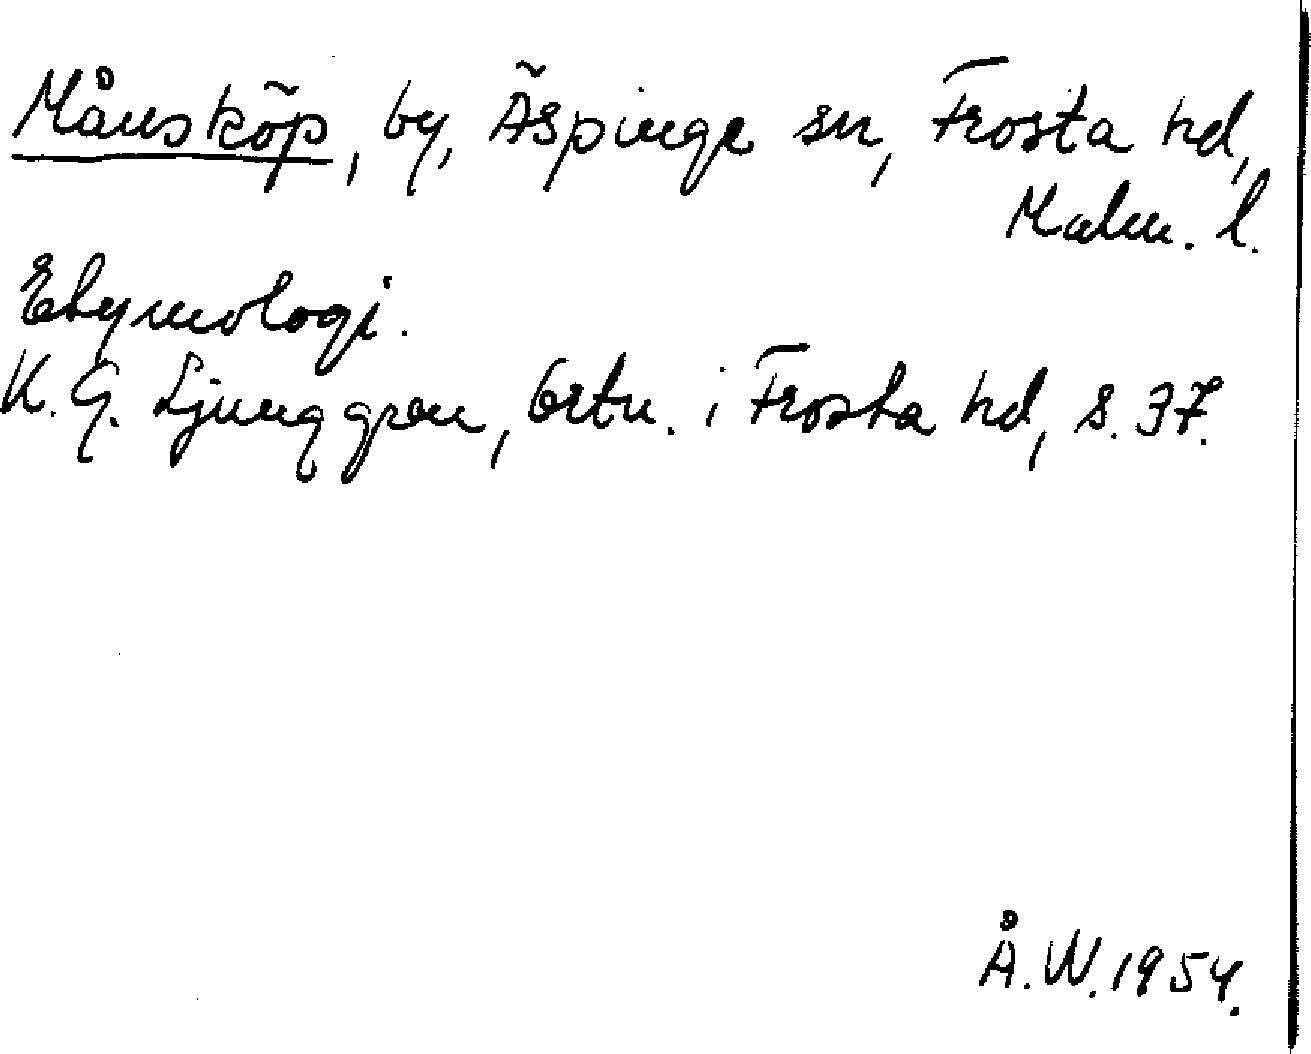 Månsköp, by, Äspinge sn, Frosta hd,
Malm. l.
Etymologi.
K. G. Ljunggren, Ortn. i Frosta hd, s. 37.
Å. W. 1954.